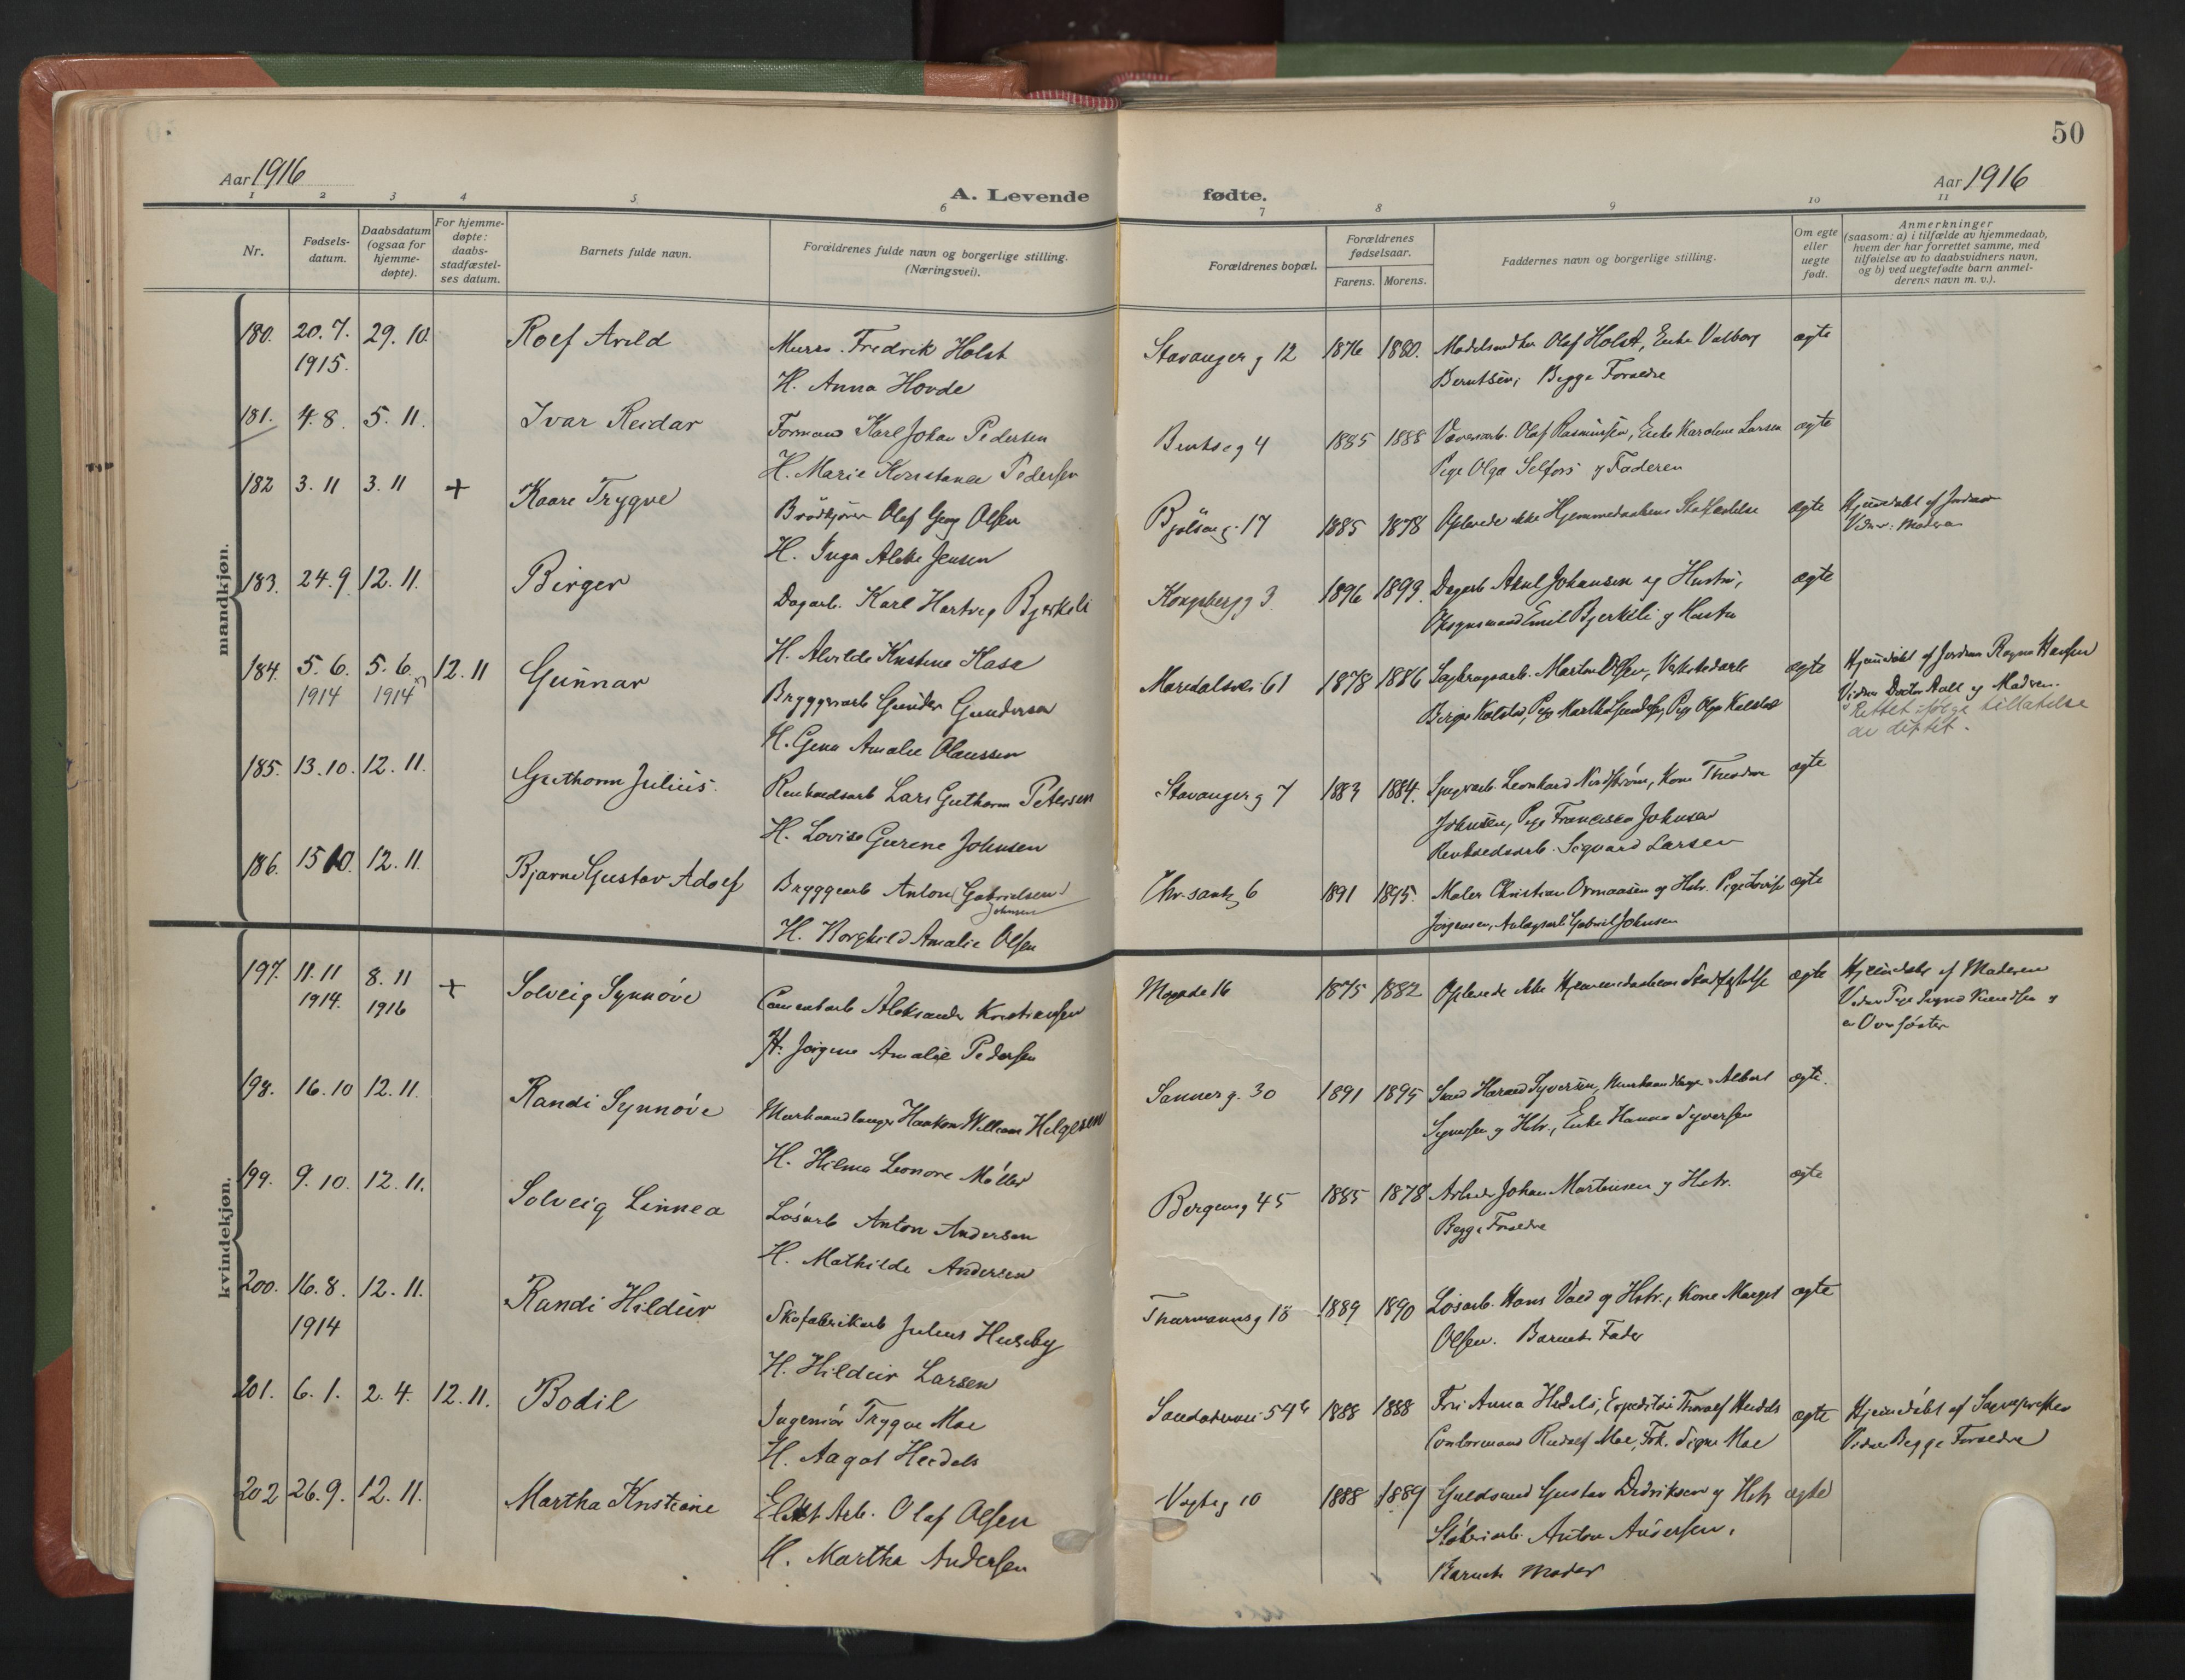 50
Aar 1916
A. Levende fødte.
Aar 1916
1 2 3 4 5 6 7 8 9 10 11
Nr.
Fødsels-
datum.
Daabsdatum
(ogsaa for
hjemme-
døpte).
For hjemme-
døpte:
daabs-
stadfæstel-
ses datum.
Barnets fulde navn.
Forældrenes fulde navn og borgerlige stilling.
(Næringsvei).
Forældrenes bopæl.
Forældrenes
fødselsaar.
Farens. Morens.
Faddernes navn og borgerlige stilling.
Om egte
eller
uegte
født.
Anmerkninger
(saasom: a) i tilfælde av hjemmedaab,
hvem der har forrettet samme, med
tilføielse av to daabsvidners navn,
og b) ved uegtefødte barn anmel-
derens navn m. v.).
mandkjøn.
180. 20.7. 29.10. Rolf Arild Murer Fredrik Holst Stavangerg 12 1876 1880. Olaf Holst, Enke Valborg ægte
1915. H. Anna Hovde Berntsen, Begge Forældre
181. 4.8. 5.11. Ivar Reidar Formand Karl Johan Pedersen Bentseg 4 1885 1888 Olaf Rasmussen, Enke Karoline Larsen ægte
H. Marie Konstance Pedersen Pige Olga Selfors og Faderen
182 3.11 3.11 + Kaare Trygve Brødkjører Olaf Georg Olsen Bjølseng. 17 1885 1878 Oplevede ikke Hjemmedaabens Stadfæstelse ægte Hjemdøbt af Jordmor
H. Inga Jensen Vidner: Moderen
183. 24.9 12.11. Birger Dagarb. Karl Hartvig Bjerkeli Kongsbergg 3. 1896 1899. Dagarb Johansen og Hustru, ægte
H. Alvilde Kristine Hasa Emil Bjerkeli og Hustru
184. 5.6. 5.6. 12.11 Gunnar Bryggeriarb Gunder Gundersen Maridalsvei 61 1878 1886 Martin Olsen, Verkstedarb ægte Hjemdøbt af Jordmor Ragna Hansen
1914 1914 H. Gina Amalie Olaussen Birger Kolstad, Pige Olga Kolstad Vidner Doctor Aall og Moderen.
Rettet ifølge tillatelse
av dept.
185. 13.10. 12.11. Guthorm Julius. Renholdsarb Lars Guthorm Petersen Stavangerg 7 1883 1884. Leonhard Nordstrøm, Kone Theodora ægte
H. Lovise Gurine Johnsen Johnsen, Pige Francisca Johnsen
Renholdsarb. Sigvard Larsen
186. 15.10. 12.11. Bjarne Gustav Adolf Bryggearb Anton (Gabrielsen) Chr.sandg 6 1891 1895. Maler Christian Ormaasen og Hstr. Pige Lovise ægte
Johnsen
H. Borghild Amalie Olsen Jørgensen, Anlægsarb Gabriel Johnsen
kvindekjøn.
197. 11.11 8.11 + Solveig Synnøve Cementarb Aleksander Kristiansen Mogade 16 1875 1882 Oplevede ikke Hjemmedaabens Stadfæstelse ægte Hjemdøbt af Moderen
1914. 1916 H. Jørgine Amalie Pedersen
198. 16.10 12.11. Randi Synnøve Murhaandlanger Haakon William Helgesen Sannerg. 30 1891 1895 Harald Syversen, Murhaandlanger Albert ægte.
H. Hilma Leonore Møller Syversen og Hstr., Enke Hanna Syversen
199. 9.10. 12.11. Solveig Linnea Løsarb Anton Andersen Bergensg 45 1885 1878 Arbeider Johan Martinsen og Hstr. ægte
H. Mathilde Andersen Begge Forældre
200. 16.8. 12.11. Randi Hildur Skofabrikarb Julius Huseby Thurmannsg 18 1889 1890 Løsarb. Hans Vold og Hstr., Kone Margit ægte
1914 H. Hildur Larsen Olsen. Barnets Fader
201. 6.1. 2.4. 12.11. Bodil Ingeniør Trygve Moe 1888 1888 Fru Anna Heidels, Expeditør Thoralf Heidels ægte Hjemdøbt af Sognepresten
H. Aagot Heidels Contormand Rudolf Moe, Frk. Signe Moe Vidner Begge Forældre
202 26.9. 12.11. Martha Kristine Elekt Arb. Olaf Olsen Vogtsg 10 1888 1889 Guldsmed Gustav Didriksen og Hstr ægte
H. Martha Andersen Støberiarb. Anton Andersen,
Barnets Moder